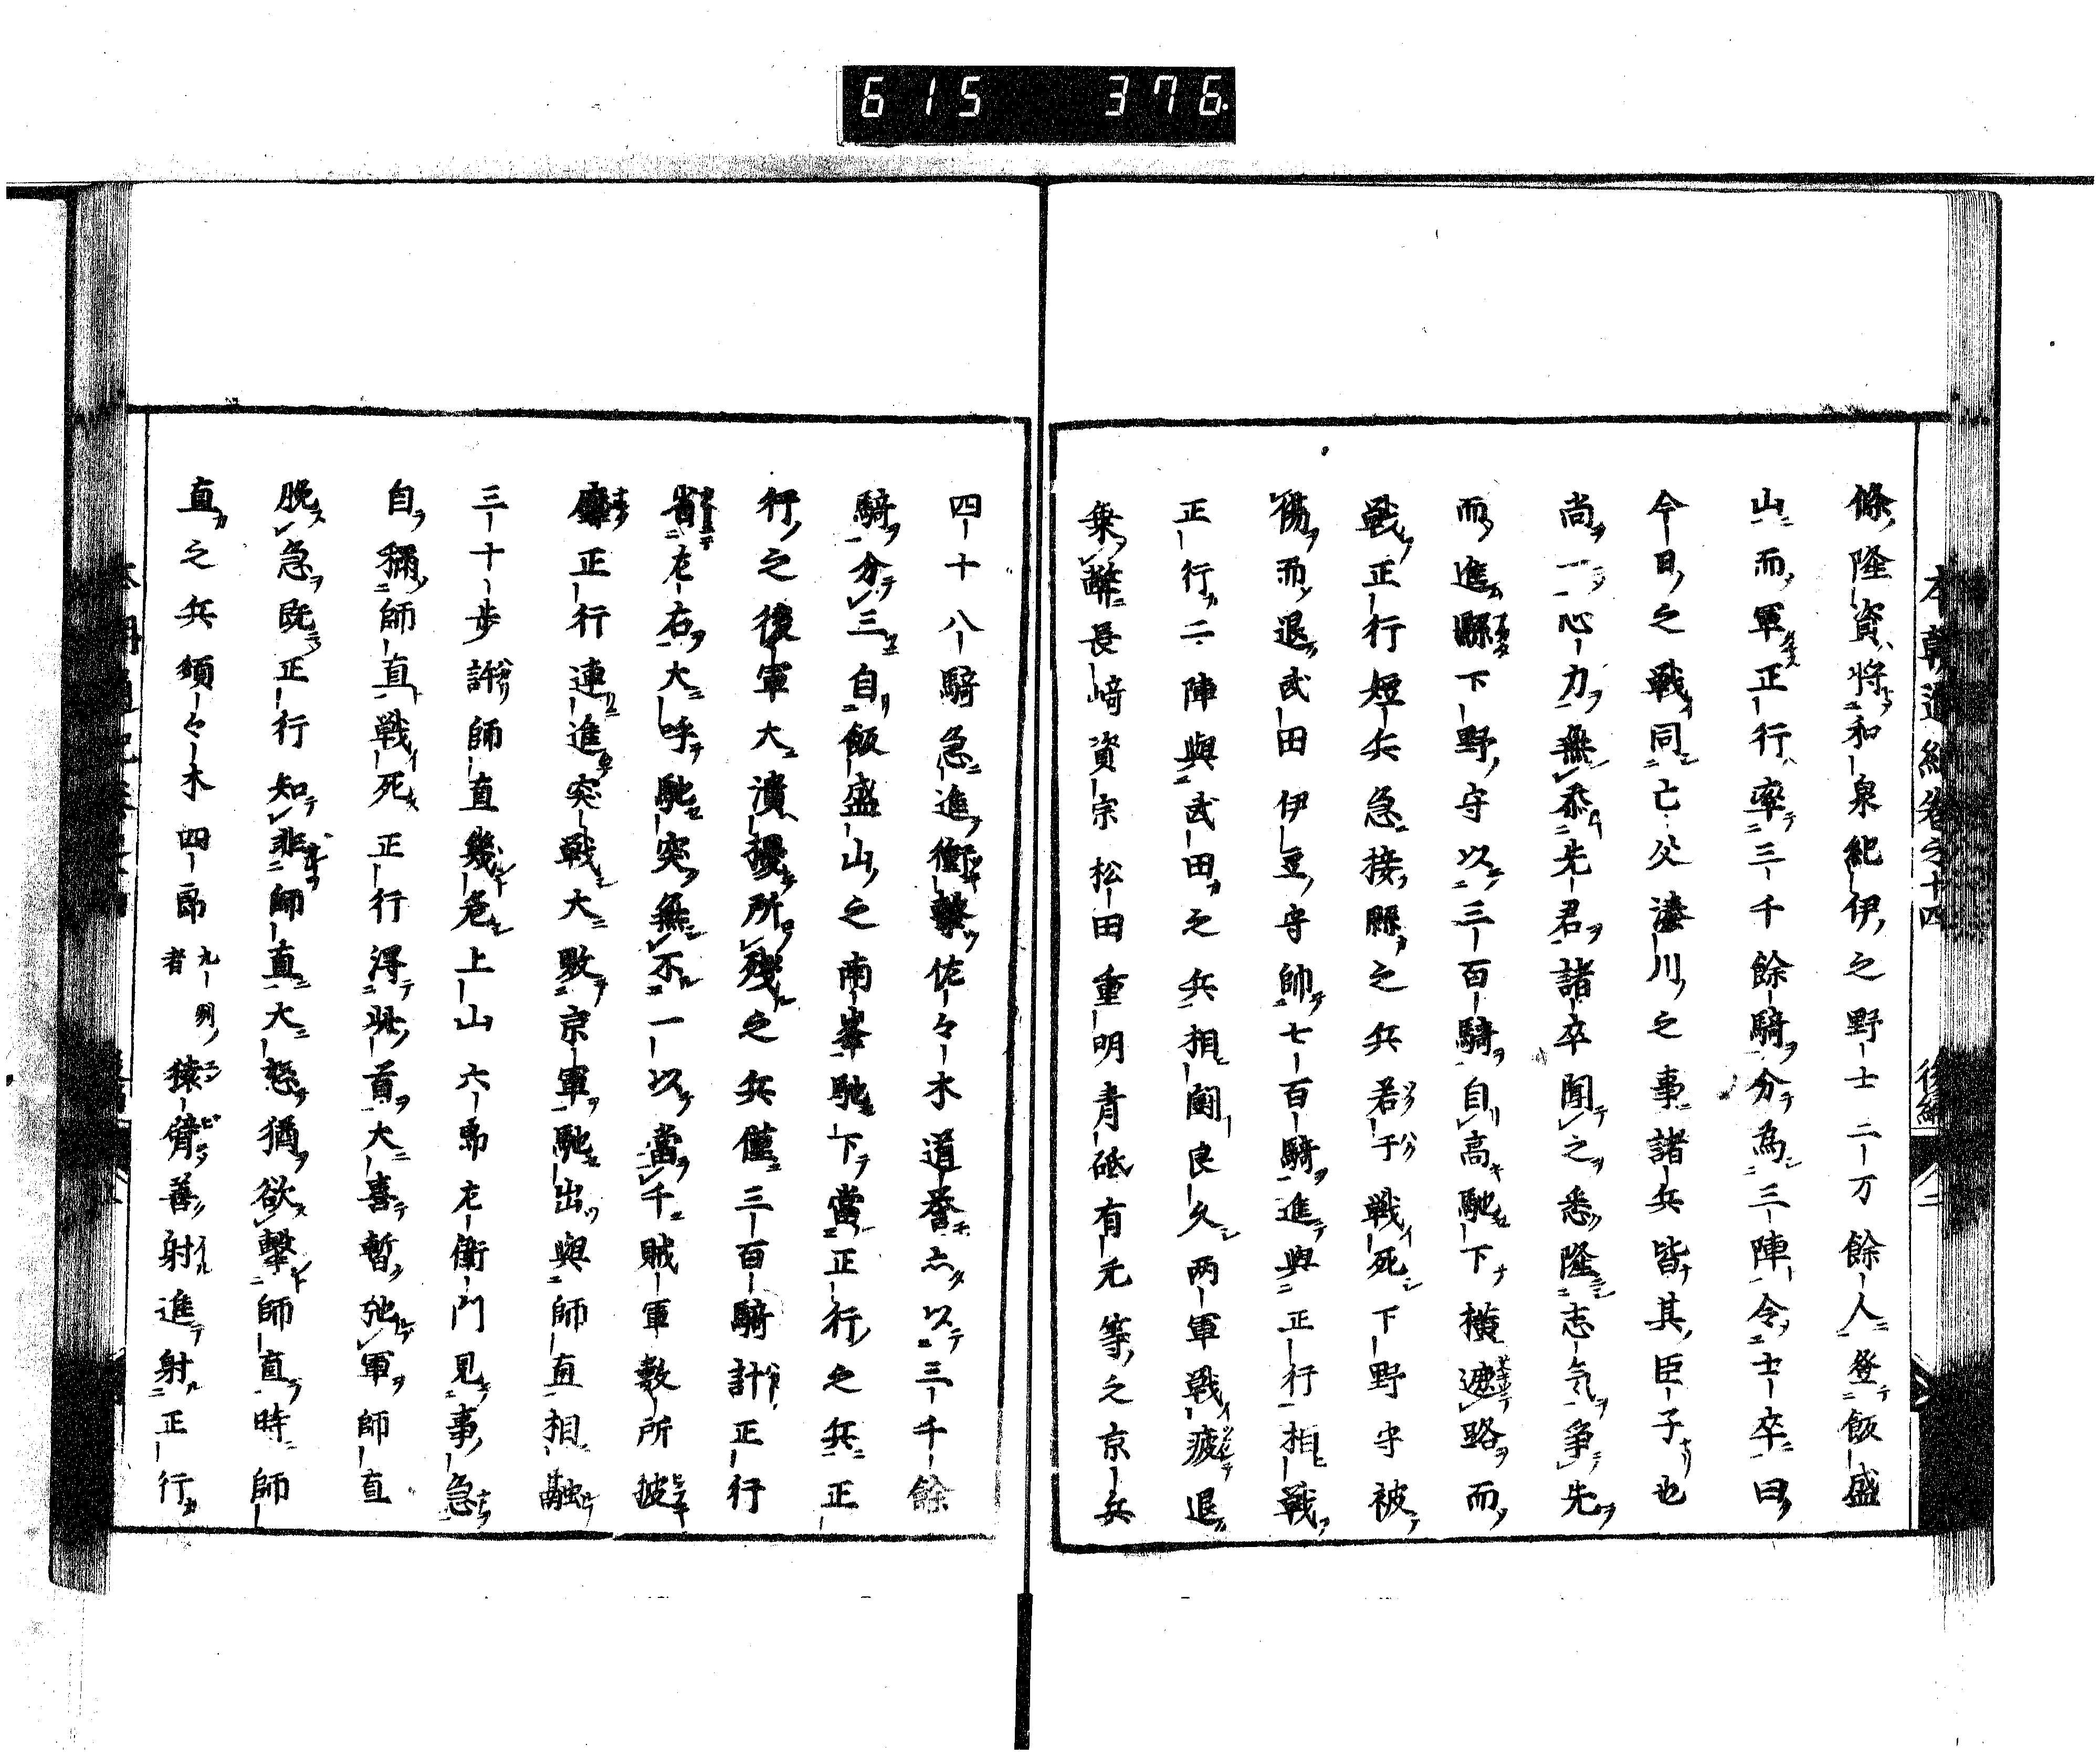 615 376
本朝通紀卷之十四 後編 二
條隆資將和泉紀伊之野士二万餘人登飯盛
山而軍正行率三千餘騎分為三陣令士卒曰
今日之戰同亡父湊川之事諸兵皆其臣子也
尚一心力無忝先君諸卒聞之悉隆志気争先
而進縣下野守以三百騎自高馳下横遮路而
戰正行短兵急接縣之兵若干戦死下野守被
傷而退武田伊豆守帥七百騎進與正行相戰
正行二陣與武田之兵相鬪良久两軍戰疲退
乗離長﨑資宗松田重明青砥有元等之京兵
四十八騎急進衝擊佐々木道誉亦以三千餘
騎分三自飯盛山之南峯馳下當正行之兵正
行之後軍大潰擾所殘之兵僅三百騎計正行
省左右大呼馳突無不一以當千賊軍數所披
靡正行連進突戰大敗京軍馳出與師直相融
三十歩許師直幾危上山六郎左衛門見事急
自稱師直戰死正行得此首大喜暫弛軍師直
晩急既正行知非師直大怒猶欲擊師直時師
直之兵須々木四郎 九州者 猿臂善射進射正行